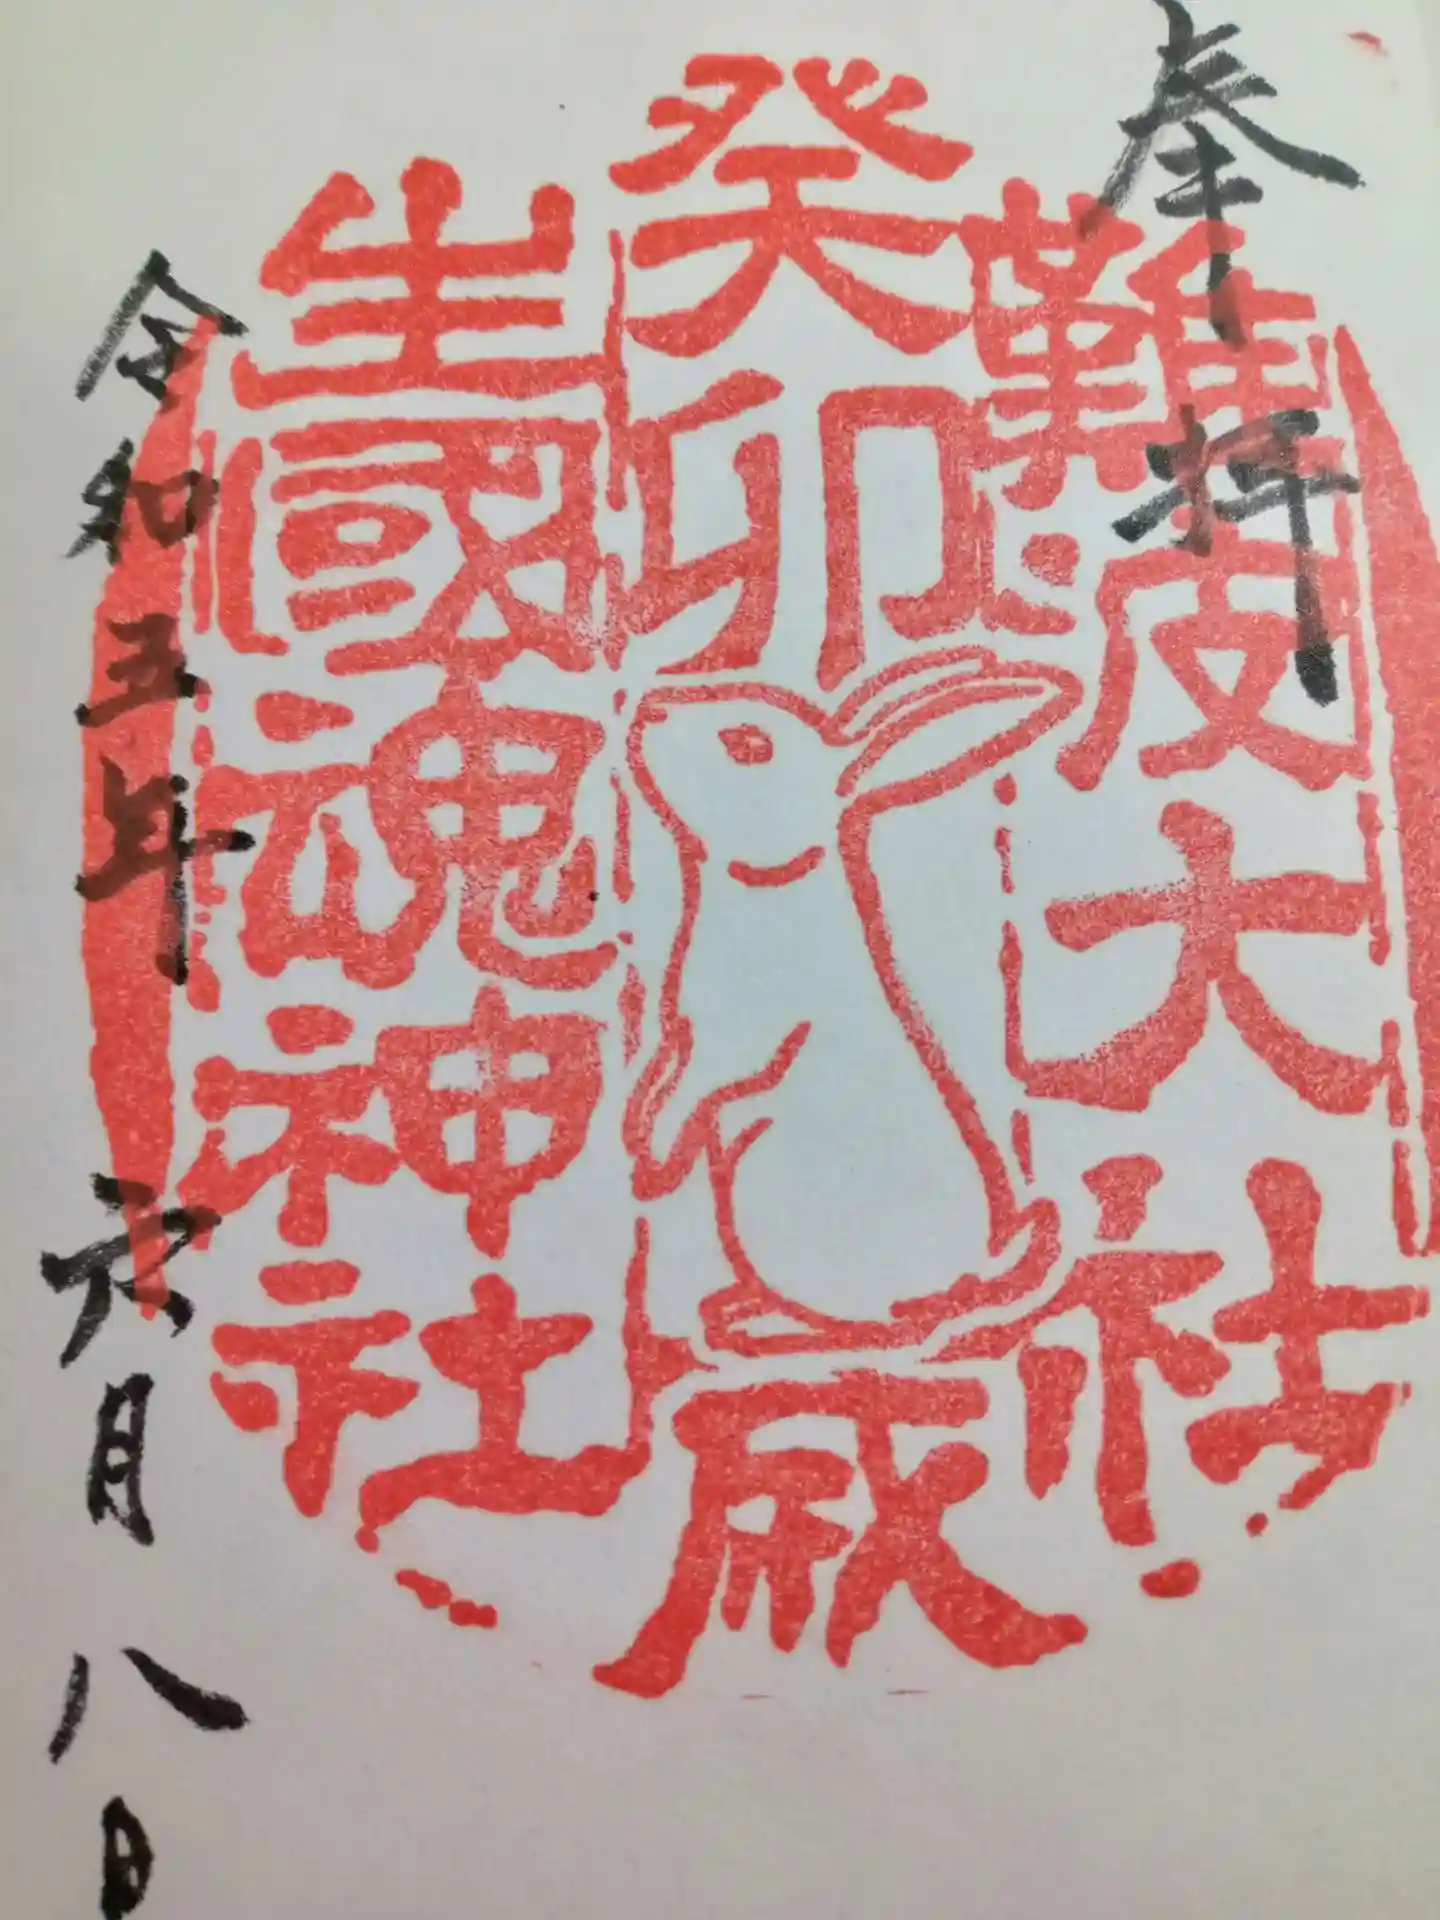 奉拝
難波大社
癸卯歳
生國魂神社
令和五年 六月八日